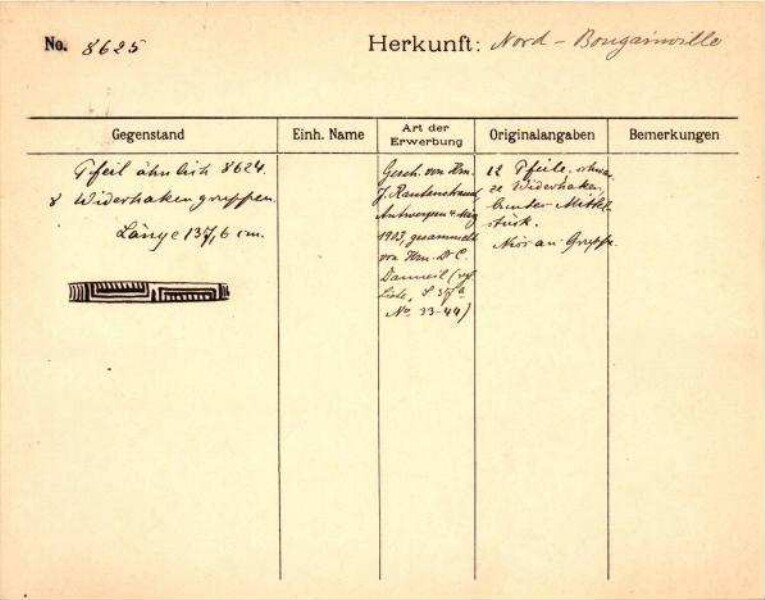 No. 8625
Herkunft: Nord - Bougainville
Gegenstand
Einh. Name
Art der
Erwerbung
Originalangaben
Bemerkungen
Pfeil ähnlich 8624.
8 Widerhakengruppen.
Länge 137,6 cm.
Gesch. von Hrn.
J. Rautenstrauch,
Antwerpen 4. Mrz
1903, gesammelt
von Hrn. Dr C.
(vgl.
Liste, S. 37a
No. 33-44)
12 Pfeile, schwar
ze Widerhaken,
bunter Mittel-
stück.